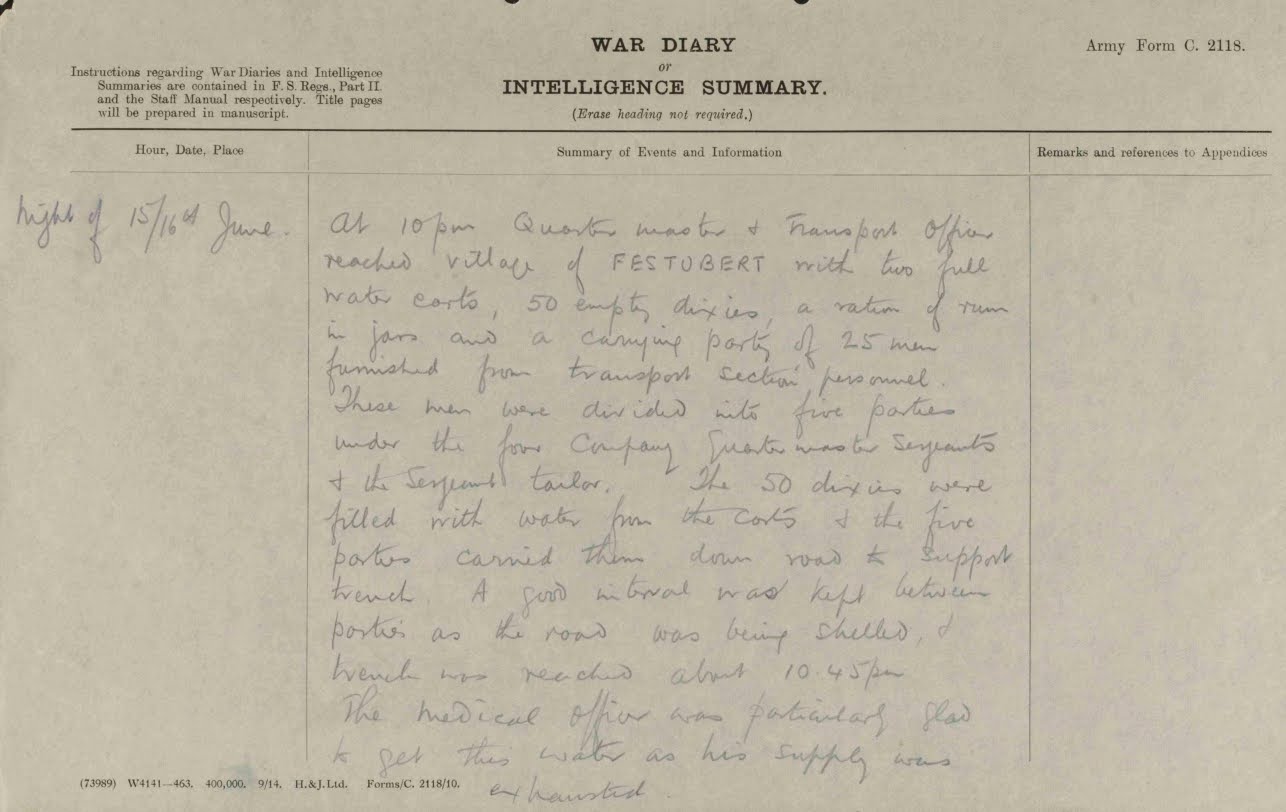 WAR DIARY
or
INTELLIGENCE SUMMARY.
(Erase heading not required.)
Army Form C. 2118.
Instructions regarding War Diaries and Intelligence
Summaries are contained in F. S. Regs., Part II.
and the Staff Manual respectively. Title pages
will be prepared in manuscript.
Hour, Date, Place
Summary of Events and Information
Remarks and references to Appendices
Night of 15/16th June.
At 10 pm Quartermaster & Transport Officer
reached village of FESTUBERT with two full
water carts, 50 empty dixies, a ration of rum
in jars and a carrying party of 25 men
furnished from transport section personnel.
These men were divided into five parties
under the four Company Quartermaster Sergeants
& the Sergeant tailor. The 50 dixies were
filled with water from the carts & the five
parties carried them down road to support
trench. A good interval was kept between
parties as the road was being shelled, &
trench was reached about 10.45 pm
The medical officer was particularly glad
to get this water as his supply was
exhausted.
(73989) W4141—463. 400,000. 9/14. H.&J.Ltd. Forms/C. 2118/10.